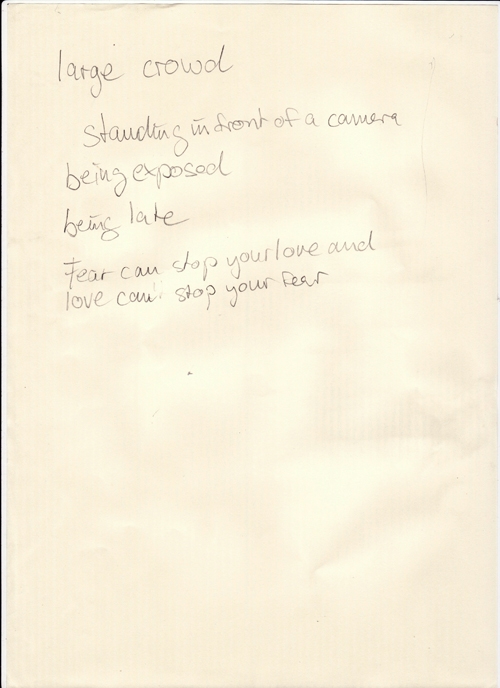 large crowd
standing in front of a camera
being exposed
being late
Fear can stop your love and
love can stop your fear